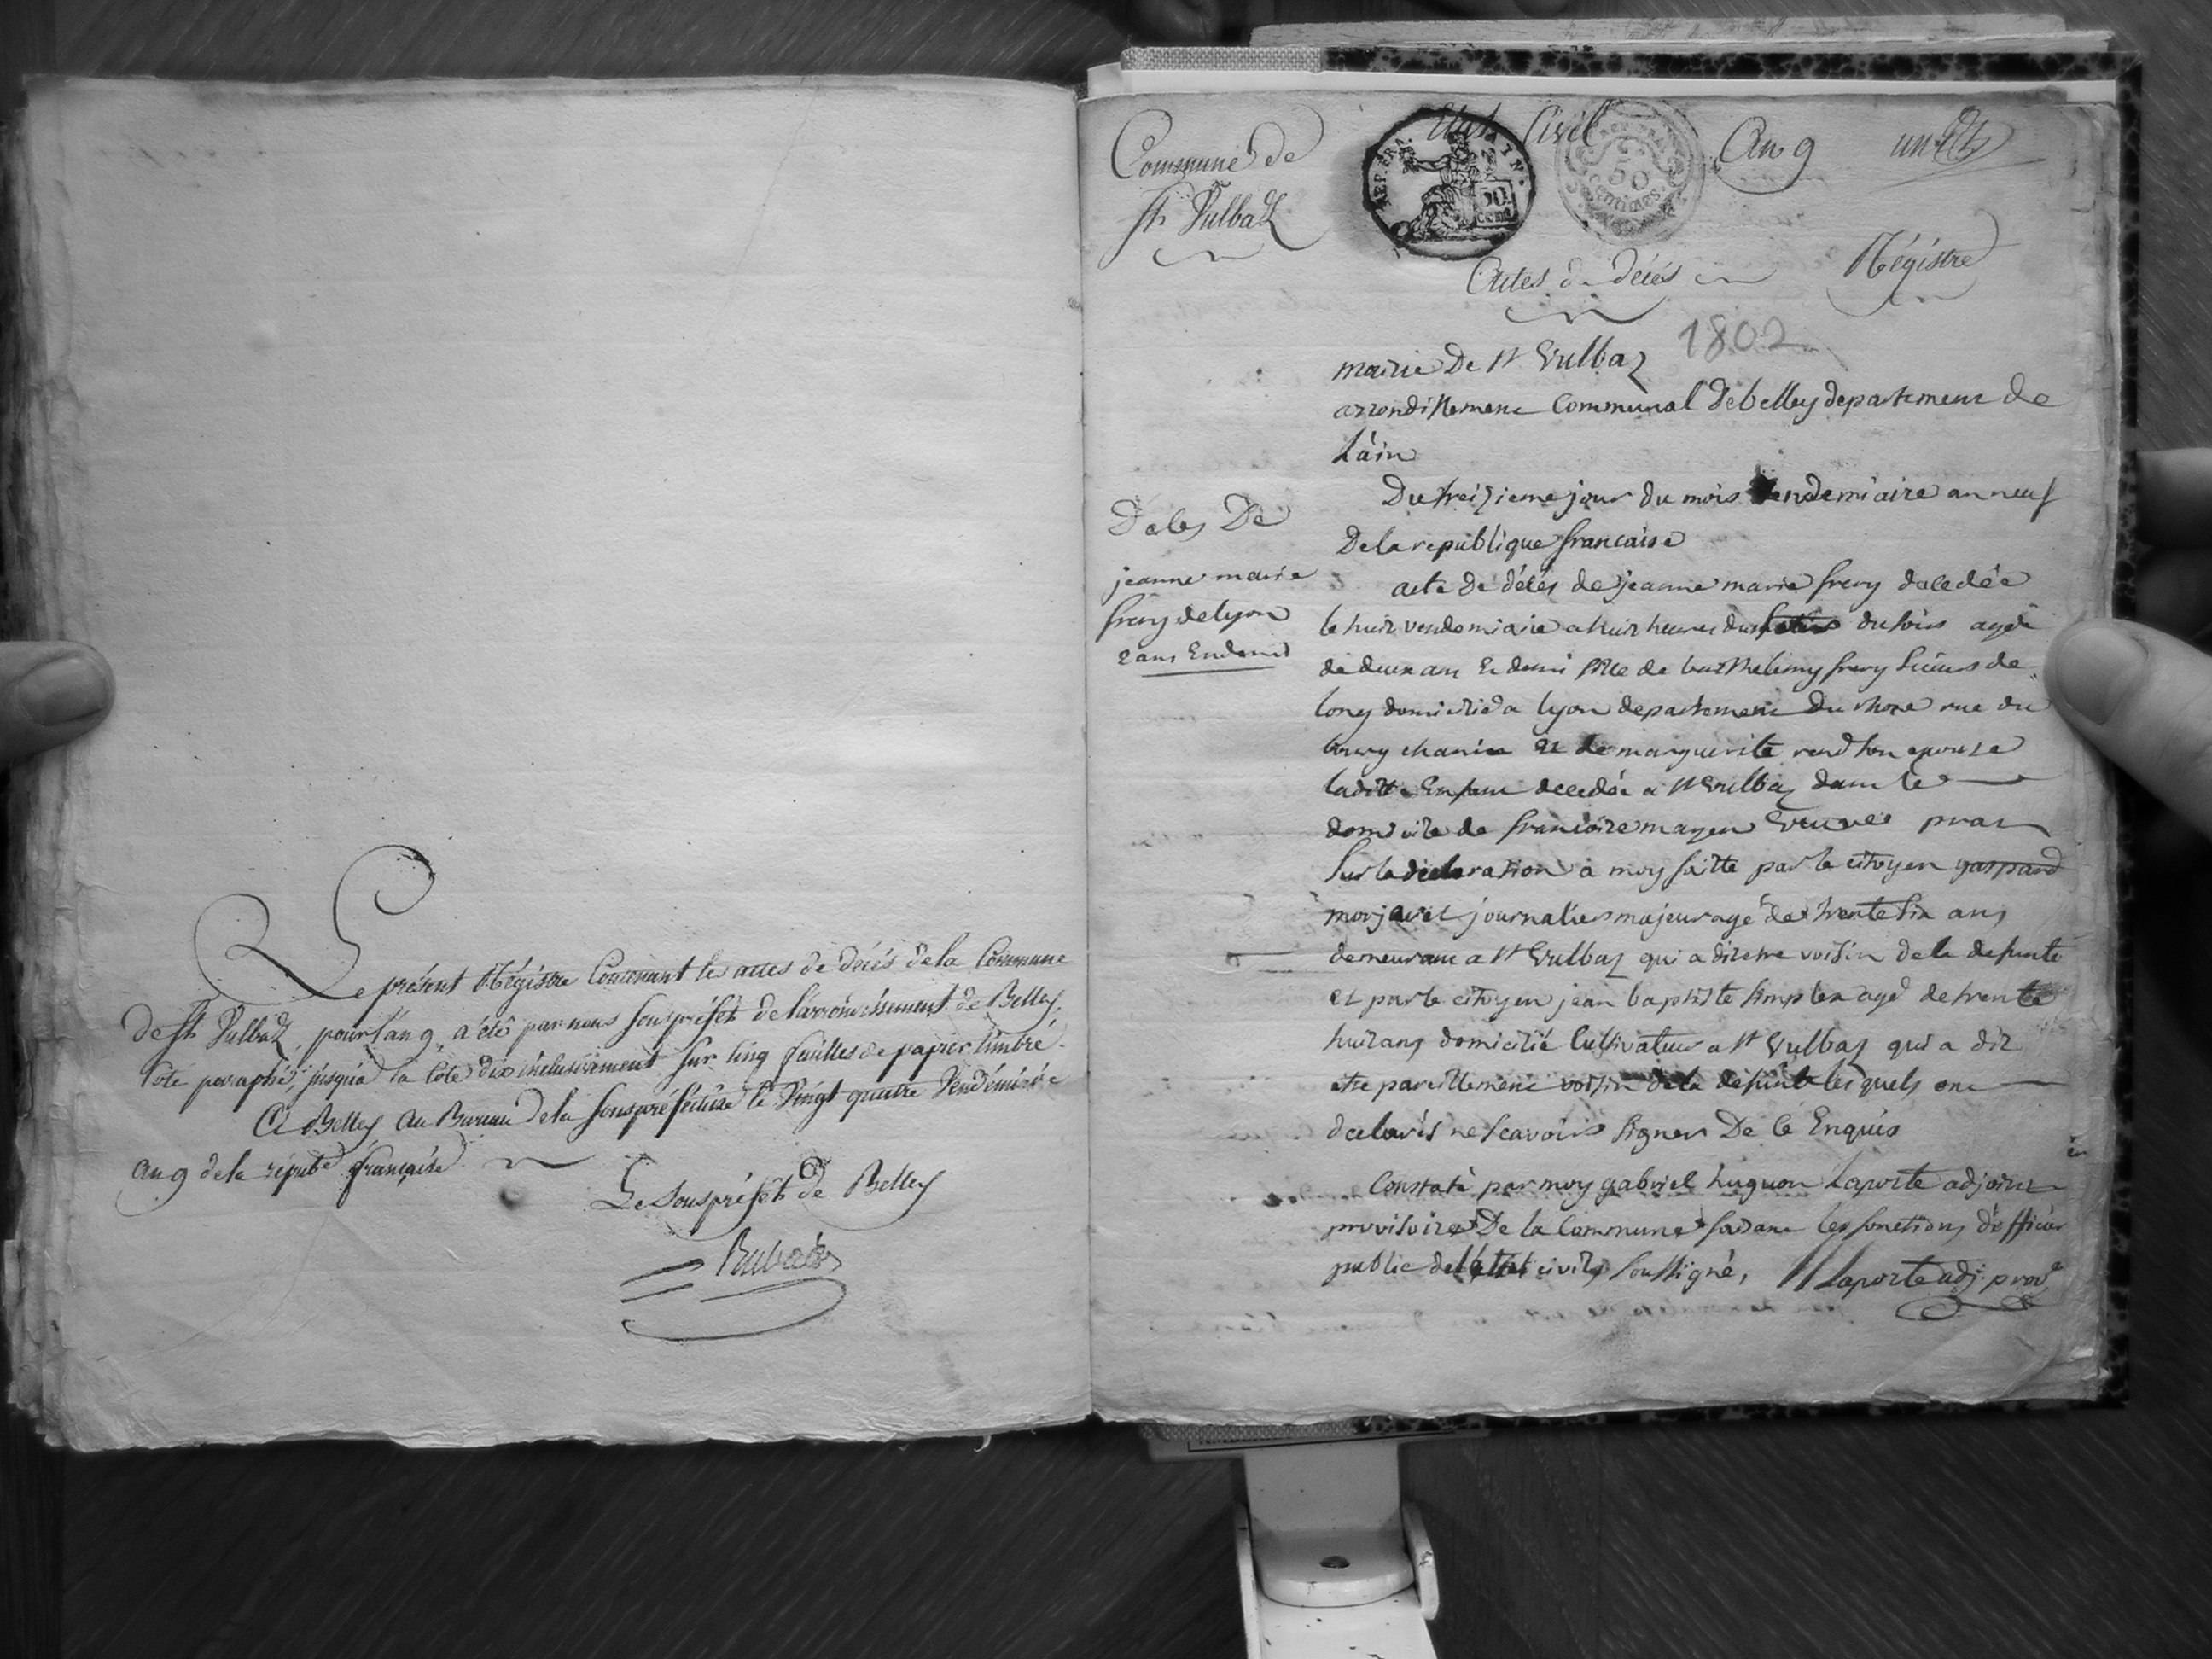 Le présent Régistre Contenant les actes de décés de la Commune
de St. Vulbaz, pour l'an 9, a été par nous souspréfet de l'arrondissement de Belley,
Coté paraphé, jusqu'a la Cote dix inclusivement sur cinq feuilles de papier timbré.
A Belley Au Bureau de la souspréfecture le Vingt quatre Vendémiaire
an 9 de la répub. française
Le souspréfet de Belley
Commune de
St. Vulbaz
Etat Civil
An 9
un
REP. FRA.
50
cent
50
centimes
Actes de décés
Régistre
1802
mairie De St Vulbaz
arrondissement Communal de belley departement de
L'ain
Du treizieme jour du mois Vendemiaire an neuf
De la republique francaise
Deces De
jeanne marie
frery de lyon
2 ans En demi
acte De décés de jeanne marie frery decedée
le huit vendemiaire a huit heures du du soir agée
de deux ans Et demi fille de barthelemy frery Scieur de
long domicilié a lyon departement Du rhone rue du
bourg chanin Et de marguerite son epouse
laditte Enfant decedée a St Vulbaz dans le
domicile de francoise mazen Veuve
Sur la déclaration a moy faitte par le citoyen gaspard
morjavel journalier majeur agé de trente six ans
demeurant a St Vulbaz qui a dit etre voisin de la defunte
et par le citoyen jean baptiste simplex agé de trente
huit ans domicilié Cultivateur a St Vulbaz qui a dit
etre pareillement voisin de la défunte les quels ont
declarés ne scavoir signer De Ce Enquis
Constaté par moy gabriel hugnon Laporte adjoint
provisoire De la Commune faisant les fonctions d'officier
public de l'état civil soussigné, Laporte adj. prov.e